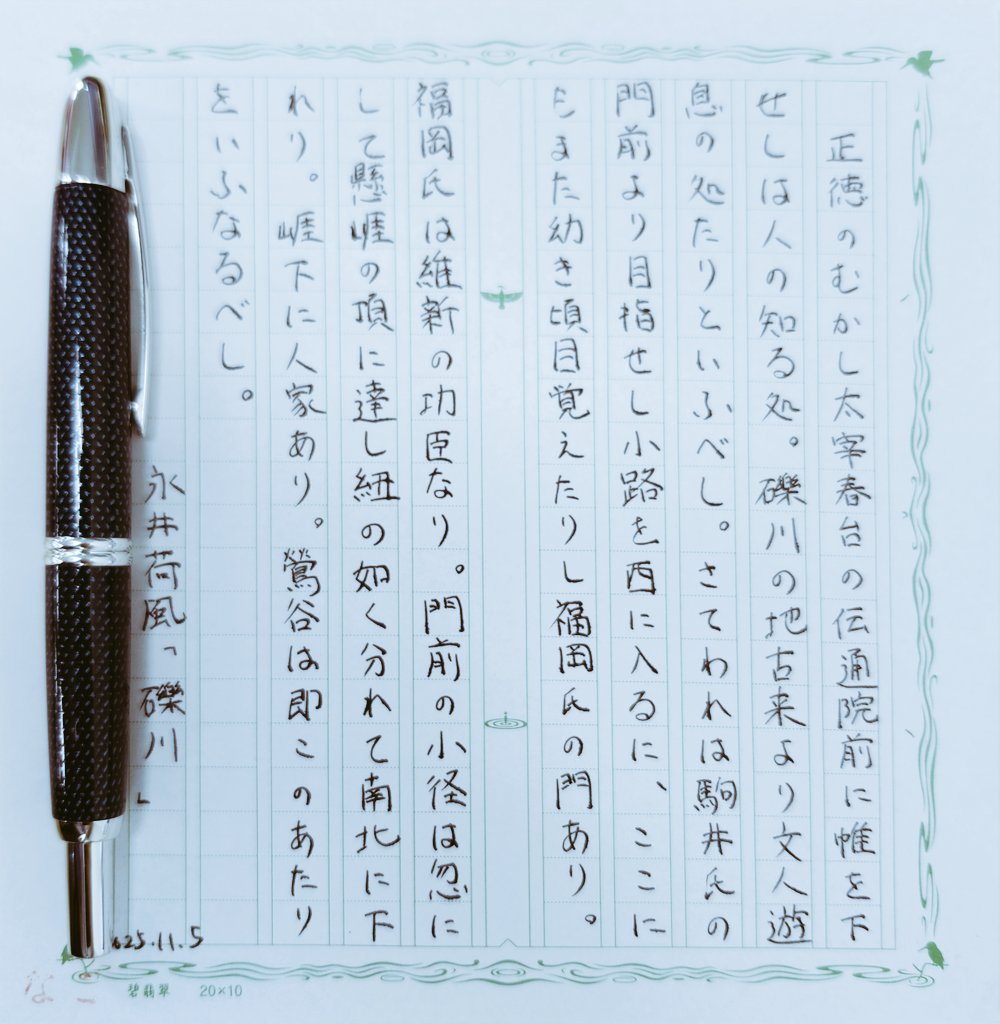 正徳のむかし太宰春台の伝通院前に帷を下
せしは人の知る処。礫川の地古来より文人遊
息の処たりといふべし。さてわれは駒井氏の
門前より目指せし小路を西に入るに、ここに
もまた幼き頃目覚えたりし福岡氏の門あり。
福岡氏は維新の功臣なり。門前の小径は忽に
して懸崖の頂に達し紐の如く分れて南北に下
れり。崖下に人家あり。鶯谷は即このあたり
をいふなるべし。
永井荷風「礫川」
025.11.5
碧翡翠 20×10